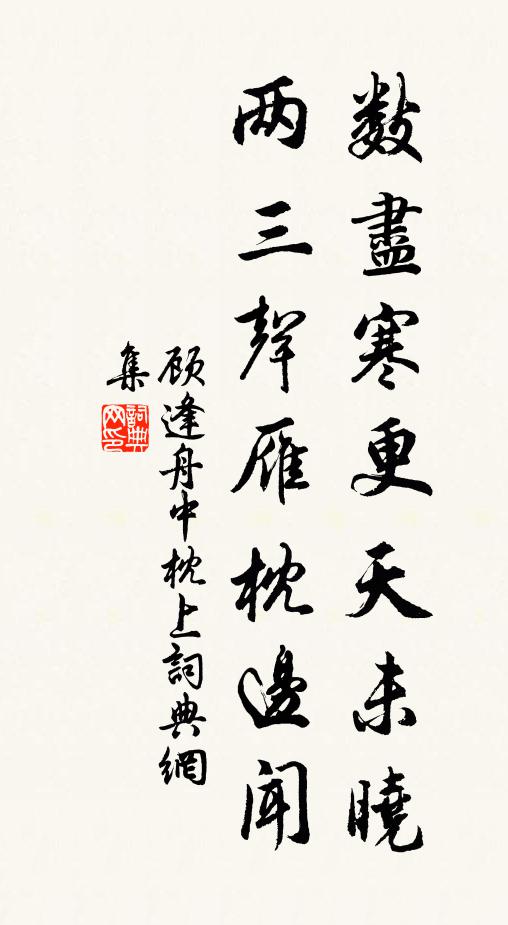 數盡寒更天未曉
两三聲雁枕邊聞
顾逢舟中枕上詞典網
集
詞典
网印